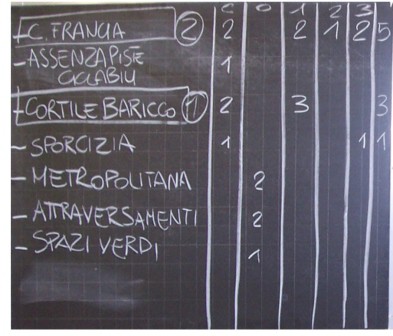 C 0 1 2 3
- C. FRANCIA 2 2 2 1 2 5
- ASSENZA PISTE 1
CICLABILI
- CORTILE BARICCO 2 3 3
- SPORCIZIA 1 1 1
- METROPOLITANA 2
- ATTRAVERSAMENTI 2
- SPAZI VERDI 1